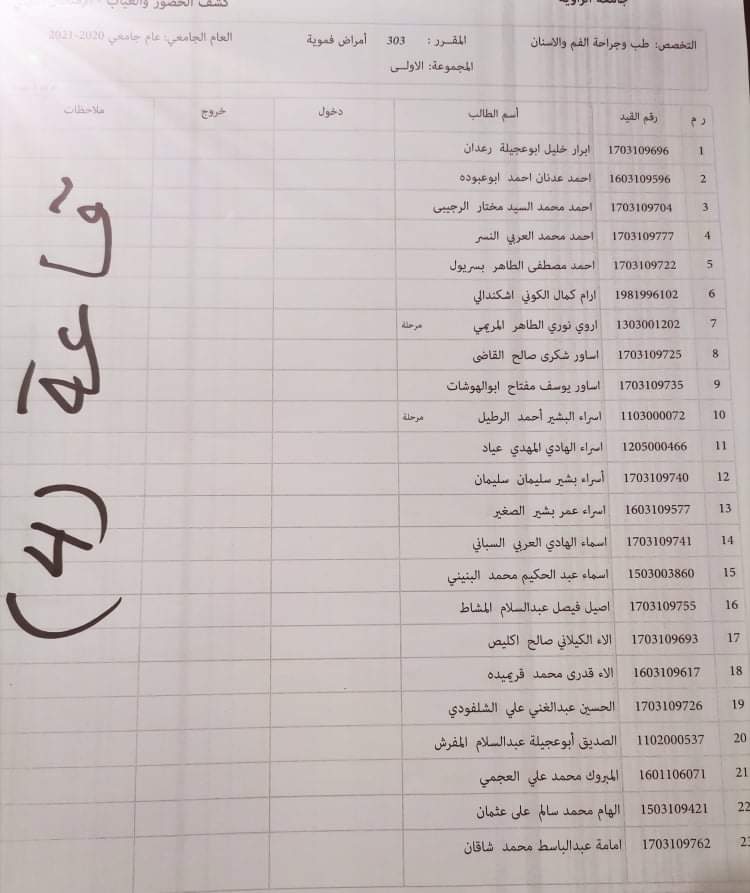 جامعة الزاوية
كشف الحضور والغياب
التخصص: طب وجراحة الفم والاسنان المقرر: 303 أمراض فموية العام الجامعي: عام جامعي 2020-2021
المجموعة: الاولى
ر م رقم القيد أسم الطالب دخول خروج ملاحظات
1 1703109696 ابرار خليل ابوعجيلة رعدان
2 1603109596 احمد عدنان احمد ابوعبوده
3 1703109704 احمد محمد السيد مختار الرجيبى
4 1703109777 احمد محمد العربي النسر
5 1703109722 احمد مصطفى الطاهر بسريول
6 1981996102 ارام كمال الكوني اشكندالي
7 1303001202 اروي نوري الطاهر المريمي مرحلة
8 1703109725 اساور شكرى صالح القاضى
9 1703109735 اساور يوسف مفتاح ابوالهوشات
10 1103000072 اسراء البشير أحمد الرطيل مرحلة
11 1205000466 اسراء الهادي المهدي عياد
12 1703109740 أسراء بشير سليمان سليمان
13 1603109577 اسراء عمر بشير الصغير
14 1703109741 اسماء الهادي العربي السباني
15 1503003860 اسماء عبد الحكيم محمد البنيني
16 1703109755 اصيل فيصل عبدالسلام المشاط
17 1703109693 الاء الكيلاني صالح اكليص
18 1603109617 الاء قدرى محمد قريميده
19 1703109726 الحسين عبدالغني علي الشلفودي
20 1102000537 الصديق أبوعجيلة عبدالسلام المفرش
21 1601106071 المبروك محمد علي العجمي
22 1503109421 الهام محمد سالم على عثمان
23 1703109762 امامة عبدالباسط محمد شاقان
(4)